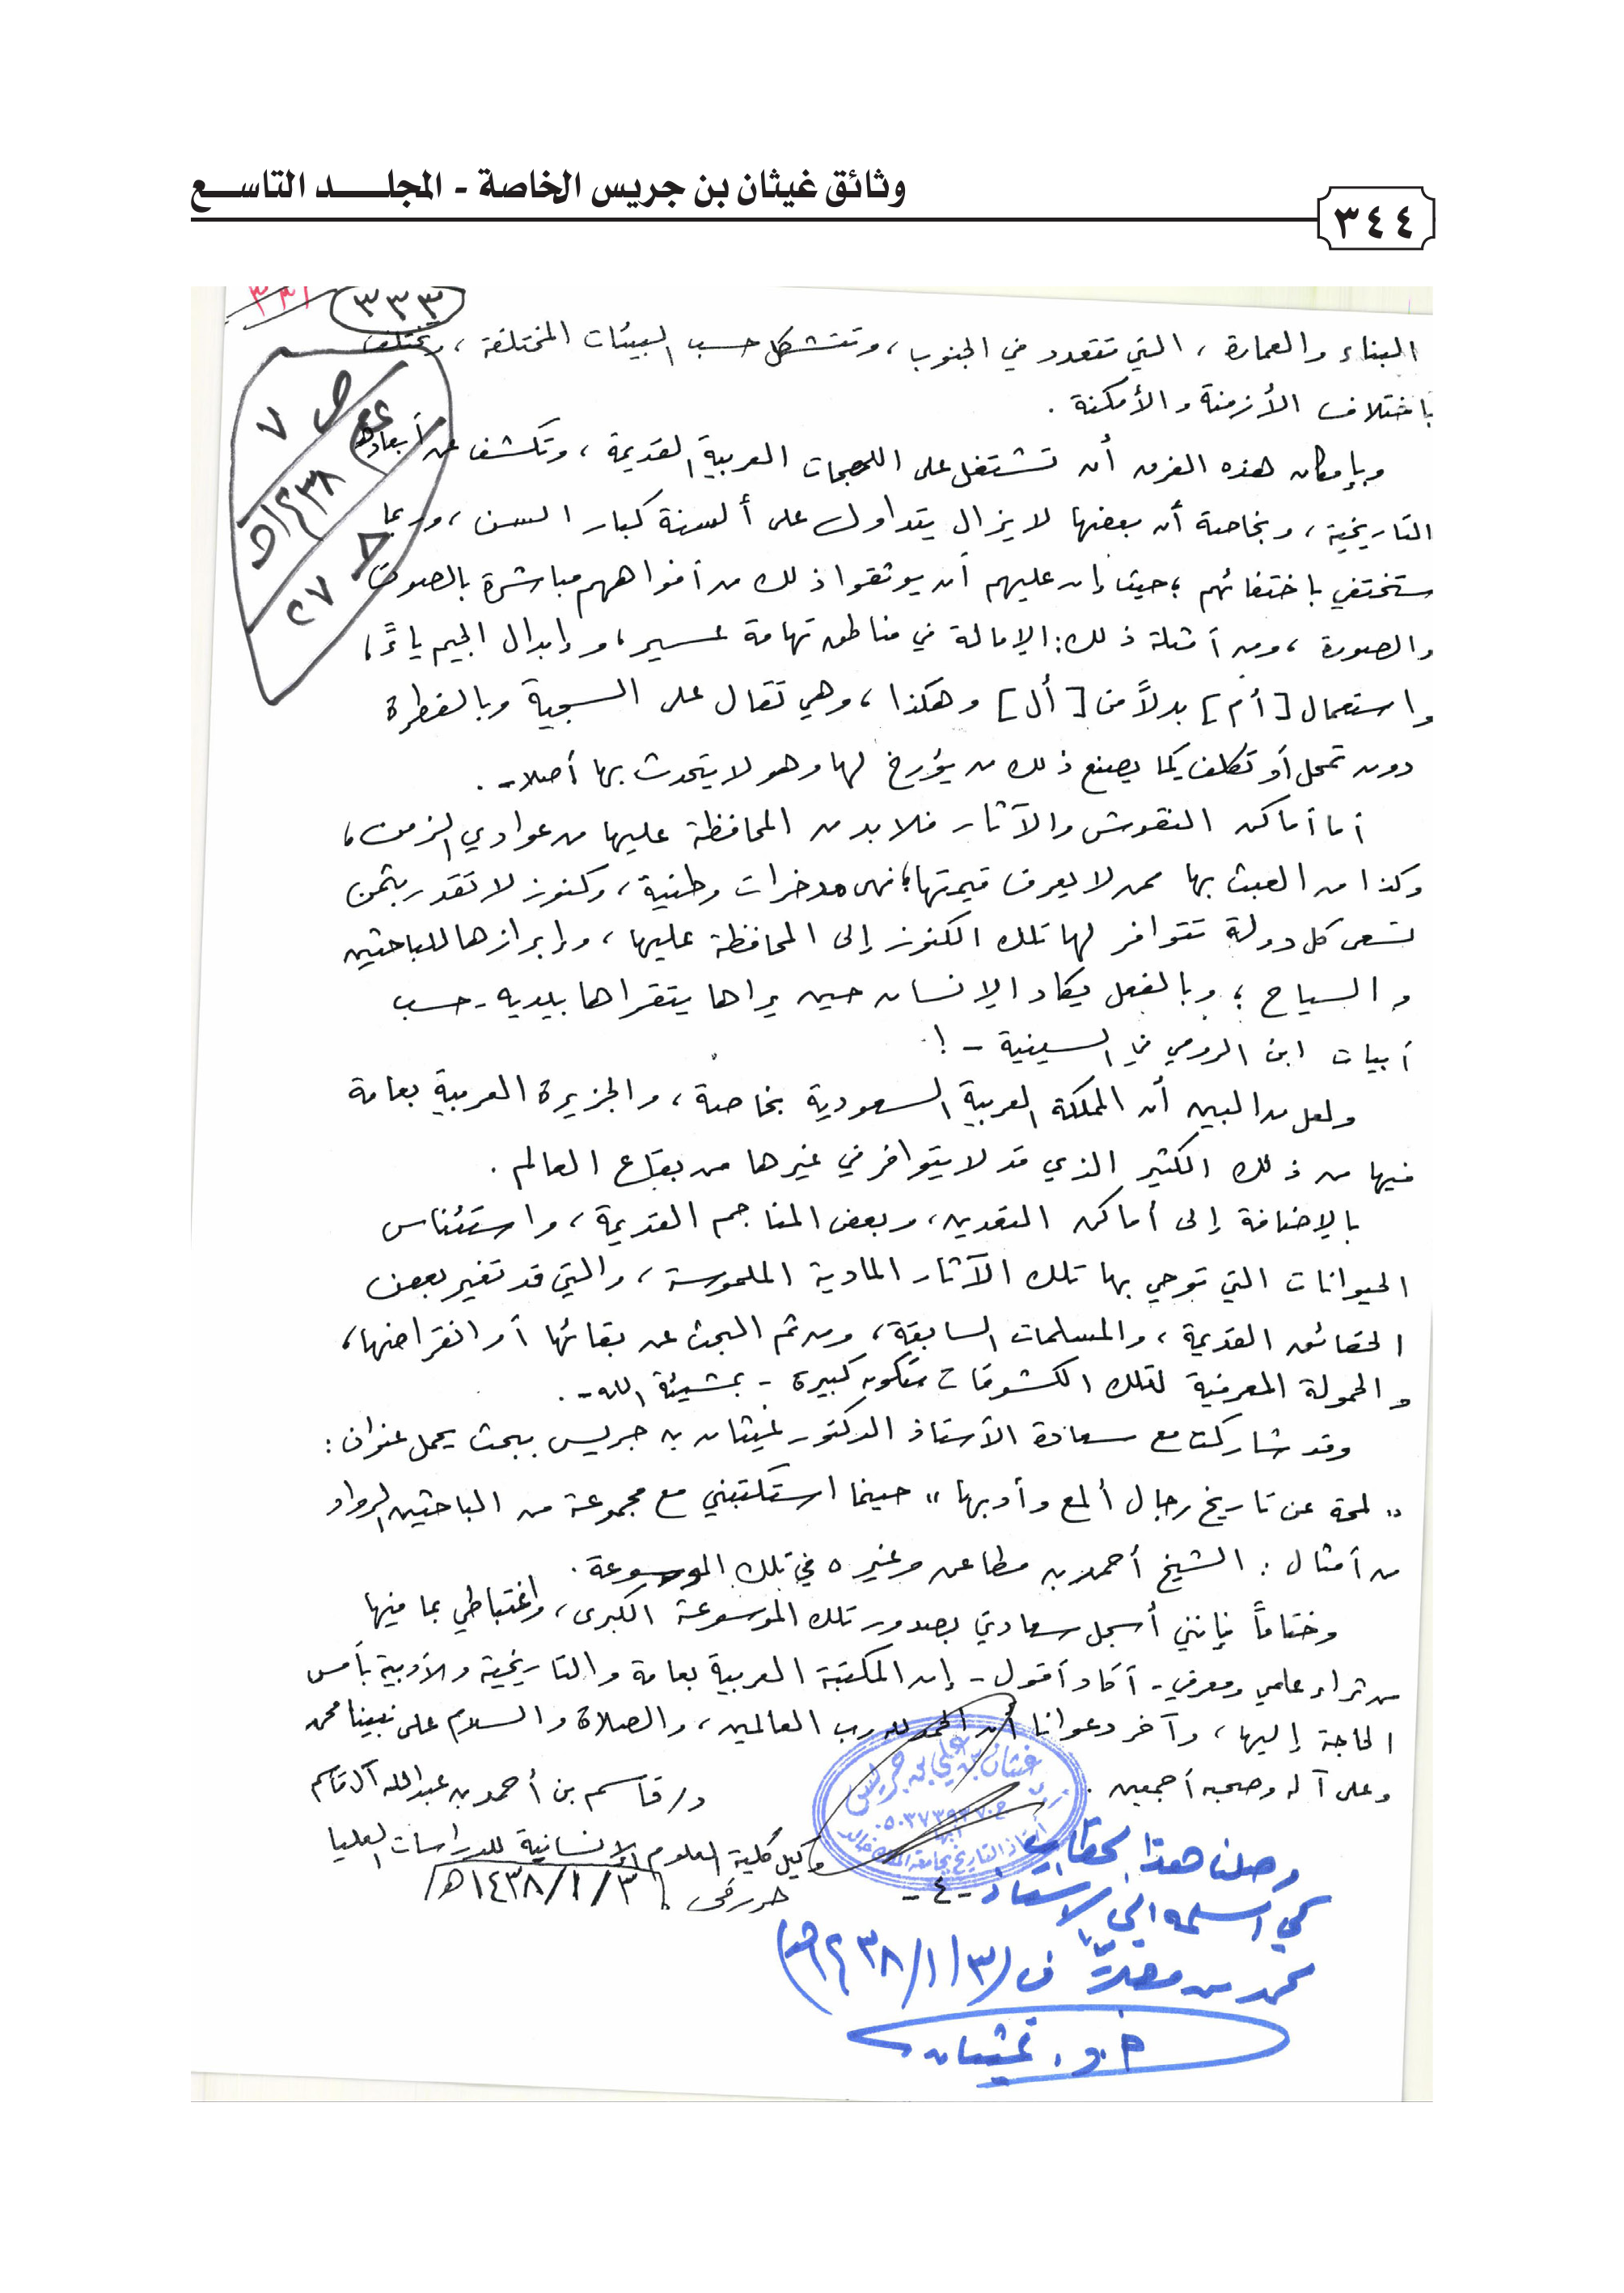 وثائق غيثان بن جريس الخاصة - المجلـــــد التاســـع
٣٤٤
٣٣٣
البناء والعمارة ، التي تتعدد في الجنوب ، وتتشكل حسب البيئات المختلفة ، وتختلف
باختلاف الأزمنة والأمكنة .
وبإمكان هذه الفرق أن تشتغل على اللهجات العربية القديمة ، وتكشف عن أبعادها
التاريخية ، وبخاصة أن بعضها لا يزال يتداول على ألسنة كبار السن ، وربما
ستختفي باختفائهم ؛ حيث إن عليهم أن يوثقوا ذلك من أفواههم مباشرة بالصوت
والصورة ، ومن أمثلة ذلك : الإمالة في مناطق تهامة عسير ، وإبدال الجيم ياءً ،
واستعمال [ أم ] بدلاً من [ أل ] وهكذا ، وهي تقال على السجية وبالفطرة
دون تمحل أو تكلف كما يصنع ذلك من يؤرخ لها وهو لا يتحدث بها أصلا - .
أما أماكن النقوش والآثار فلا بد من المحافظة عليها من عوادي الزمن ،
وكذا من العبث بها ممن لا يعرف قيمتها ؛ فهي مدخرات وطنية ، وكنوز لا تقدر بثمن
تسعى كل دولة تتوافر لها تلك الكنوز إلى المحافظة عليها ، وإبرازها للباحثين
والسياح ؛ وبالفعل يكاد الإنسان حين يراها يتقراها بيديه - حسب
أبيات ابن الرومي في السينية - !
ولعل من البين أن المملكة العربية السعودية بخاصة ، والجزيرة العربية بعامة
فيها من ذلك الكثير الذي قد لا يتوافر في غيرها من بقاع العالم .
بالإضافة إلى أماكن التعدين ، وبعض المناجم القديمة ، واستئناس
الحيوانات التي توحي بها تلك الآثار المادية الملموسة ، والتي قد تغير بعض
الحقائق القديمة ، والمسلمات السابقة ، ومن ثم البحث عن بقائها أو انقراضها ،
والحمولة المعرفية لتلك الكشوفات ستكون كبيرة - بمشيئة الله - .
وقد شاركت مع سعادة الأستاذ الدكتور غيثان بن جريس ببحث يحمل عنوان :
" لمحة عن تاريخ رجال ألمع وأدبها " حينما استكتبني مع مجموعة من الباحثين الرواد
من أمثال : الشيخ أحمد بن مطاعن وغيره في تلك الموسوعة .
وختاماً فإنني أسجل سعادتي بصدور تلك الموسوعة الكبرى ، واغتباطي بما فيها
من ثراء علمي ومعرفي - أكاد أقول - إن المكتبة العربية بعامة والتاريخية والأدبية بأمس
الحاجة إليها ، وآخر دعوانا أن الحمد لله رب العالمين ، والصلاة والسلام على نبينا محمد
وعلى آله وصحبه أجمعين .
د/ قاسم بن أحمد بن عبدالله آل قاسم
وكيل كلية العلوم الإنسانية للدراسات العليا
حرر في ١٤٣٨/١/٣هـ
غيثان بن علي بن جريس
أستاذ التاريخ بجامعة الملك خالد
- ٤ -
وصلنا هذا الخطاب